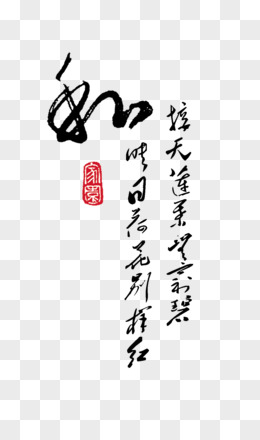 接天莲叶无穷碧
映日荷花别样红
和
家园